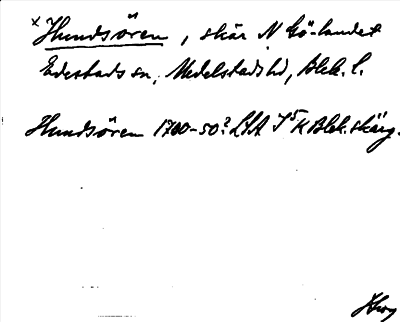 x Hundsören, skär N Gö-landet
Edestads sn, Medelstads hd, Blek. l.
Hundsören 1700-50? LSA I5 K Blek. skärg.